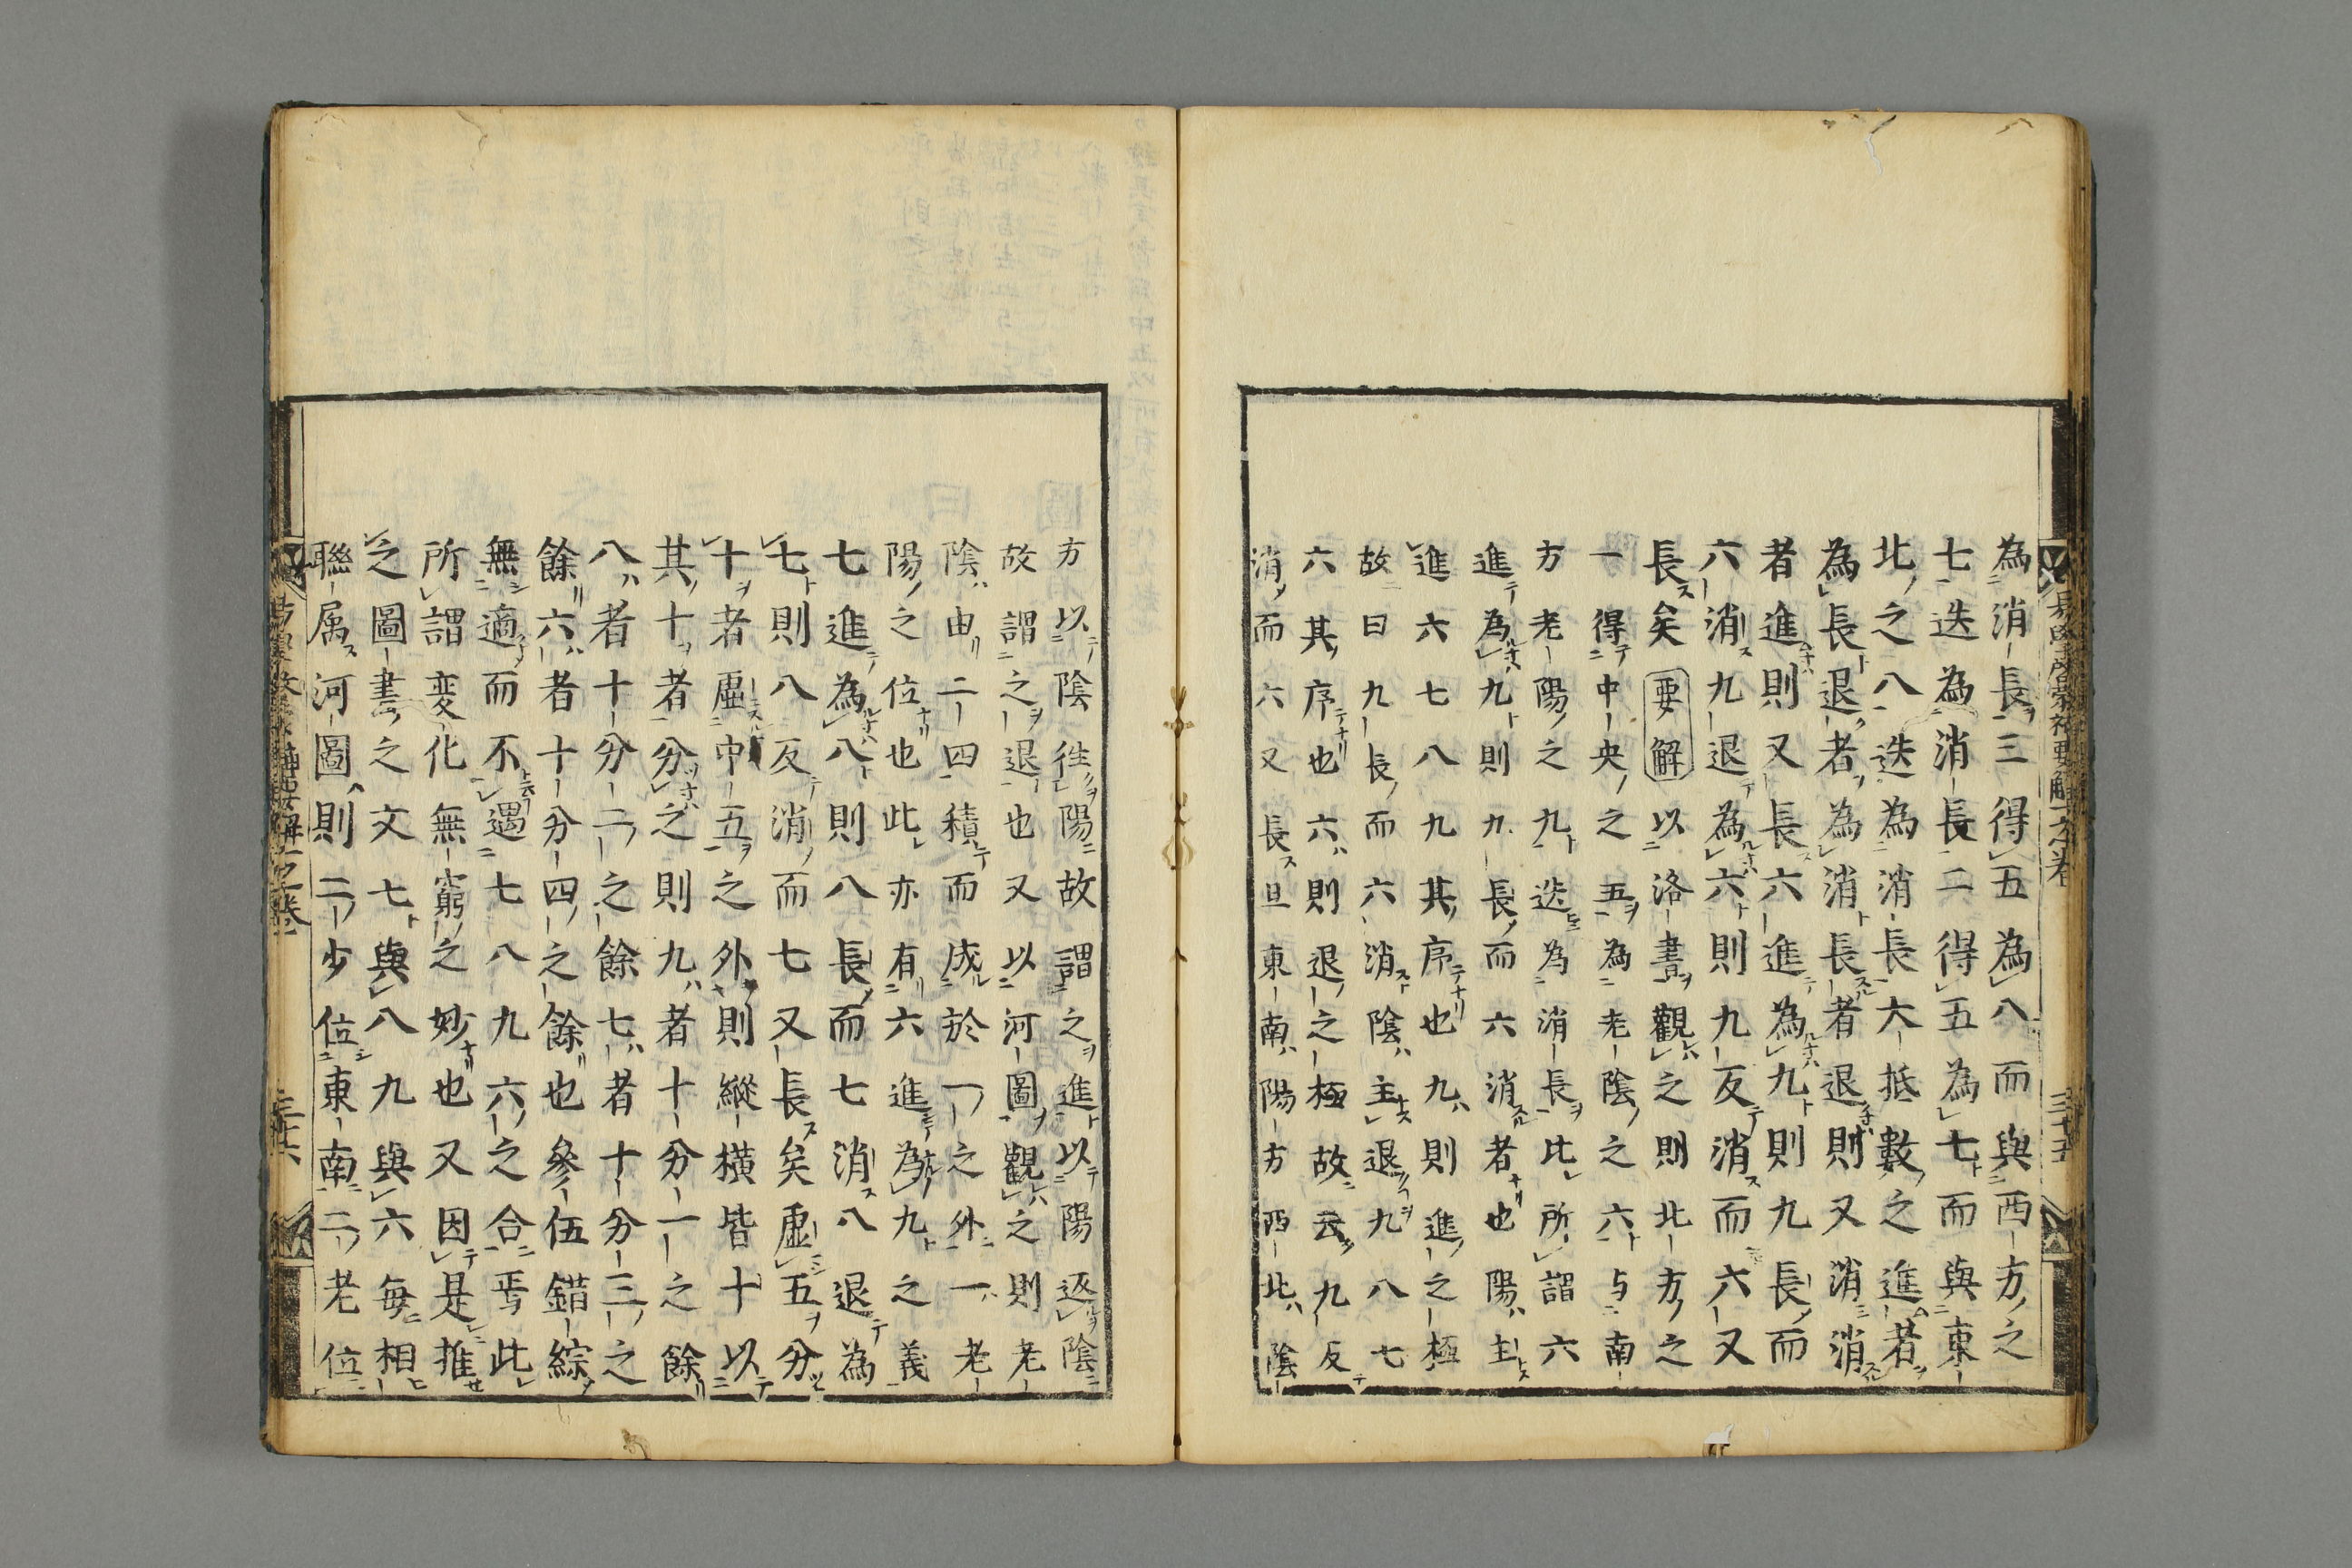 為消長三得五為八而與西方之
七迭為消長二得五為七而與東
北之八迭為消長大抵數之進者
為長退者為消長者退則又消消
者進則又長六進為九則九長而
六消九退為六則九反消而六又
長矣要解以洛書觀之則北方之
一得中央之五為老陰之六与南
方老陽之九迭為消長此所謂六
進為九則九長而六消者也陽主
進六七八九其序也九則進之極
故曰九長而六消陰主退九八七
六其序也六則退之極故云九反
消而六又長旦東南陽方西北陰
方以陰徃陽故謂之進以陽返陰
故謂之退也又以河圖觀之則老
陰由二四積而成於一之外一老
陽之位也此亦有六進為九之義
七進為八則八長而七消八退為
七則八反消而七又長矣虛五分
十者虛中五之外則縱橫皆十以
其十者分之則九者十分一之餘
八者十分二之餘七者十分三之
餘六者十分四之餘也參伍錯綜
無適而不遇七八九六之合焉此
所謂変化無窮之妙也又因是推
之圖書之文七與八九與六每相
聯属河圖則二少位東南二老位
三十五
三十六